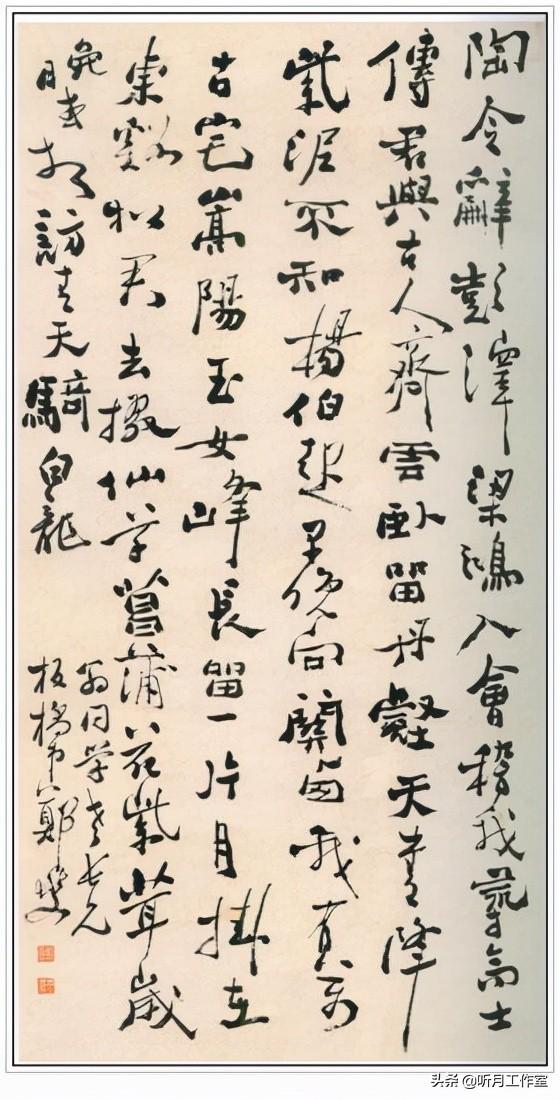 陶令辭彭澤梁鴻入會稽我尋高士
傳君與古人齊雲臥留丹壑天書降
紫泥不知楊伯起早晚向關西我有万
古宅嵩陽玉女峰長留一片月掛在
東谿松君去掇仙草菖蒲花紫茸歲
晚或相訪青天騎白龍
翁同學老長兄
板橋弟鄭燮
头条 @听月工作室